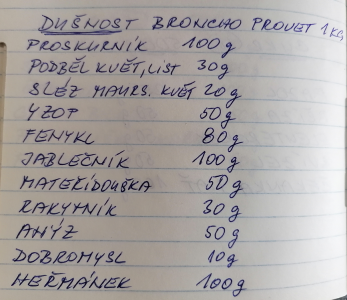 DUŠNOST BRONCHO PROVET 1KG
PROSKURNÍK 100g
PODBĚL KVĚT, LIST 30g
SLÉZ MAURS. KVĚT 20g
YZOP 50g
FENYKL 80g
JABLEČNÍK 100g
MATEŘÍDOUŠKA 50g
RAKYTNÍK 30g
ANÝZ 50g
DOBROMYSL 10g
HEŘMÁNEK 100g